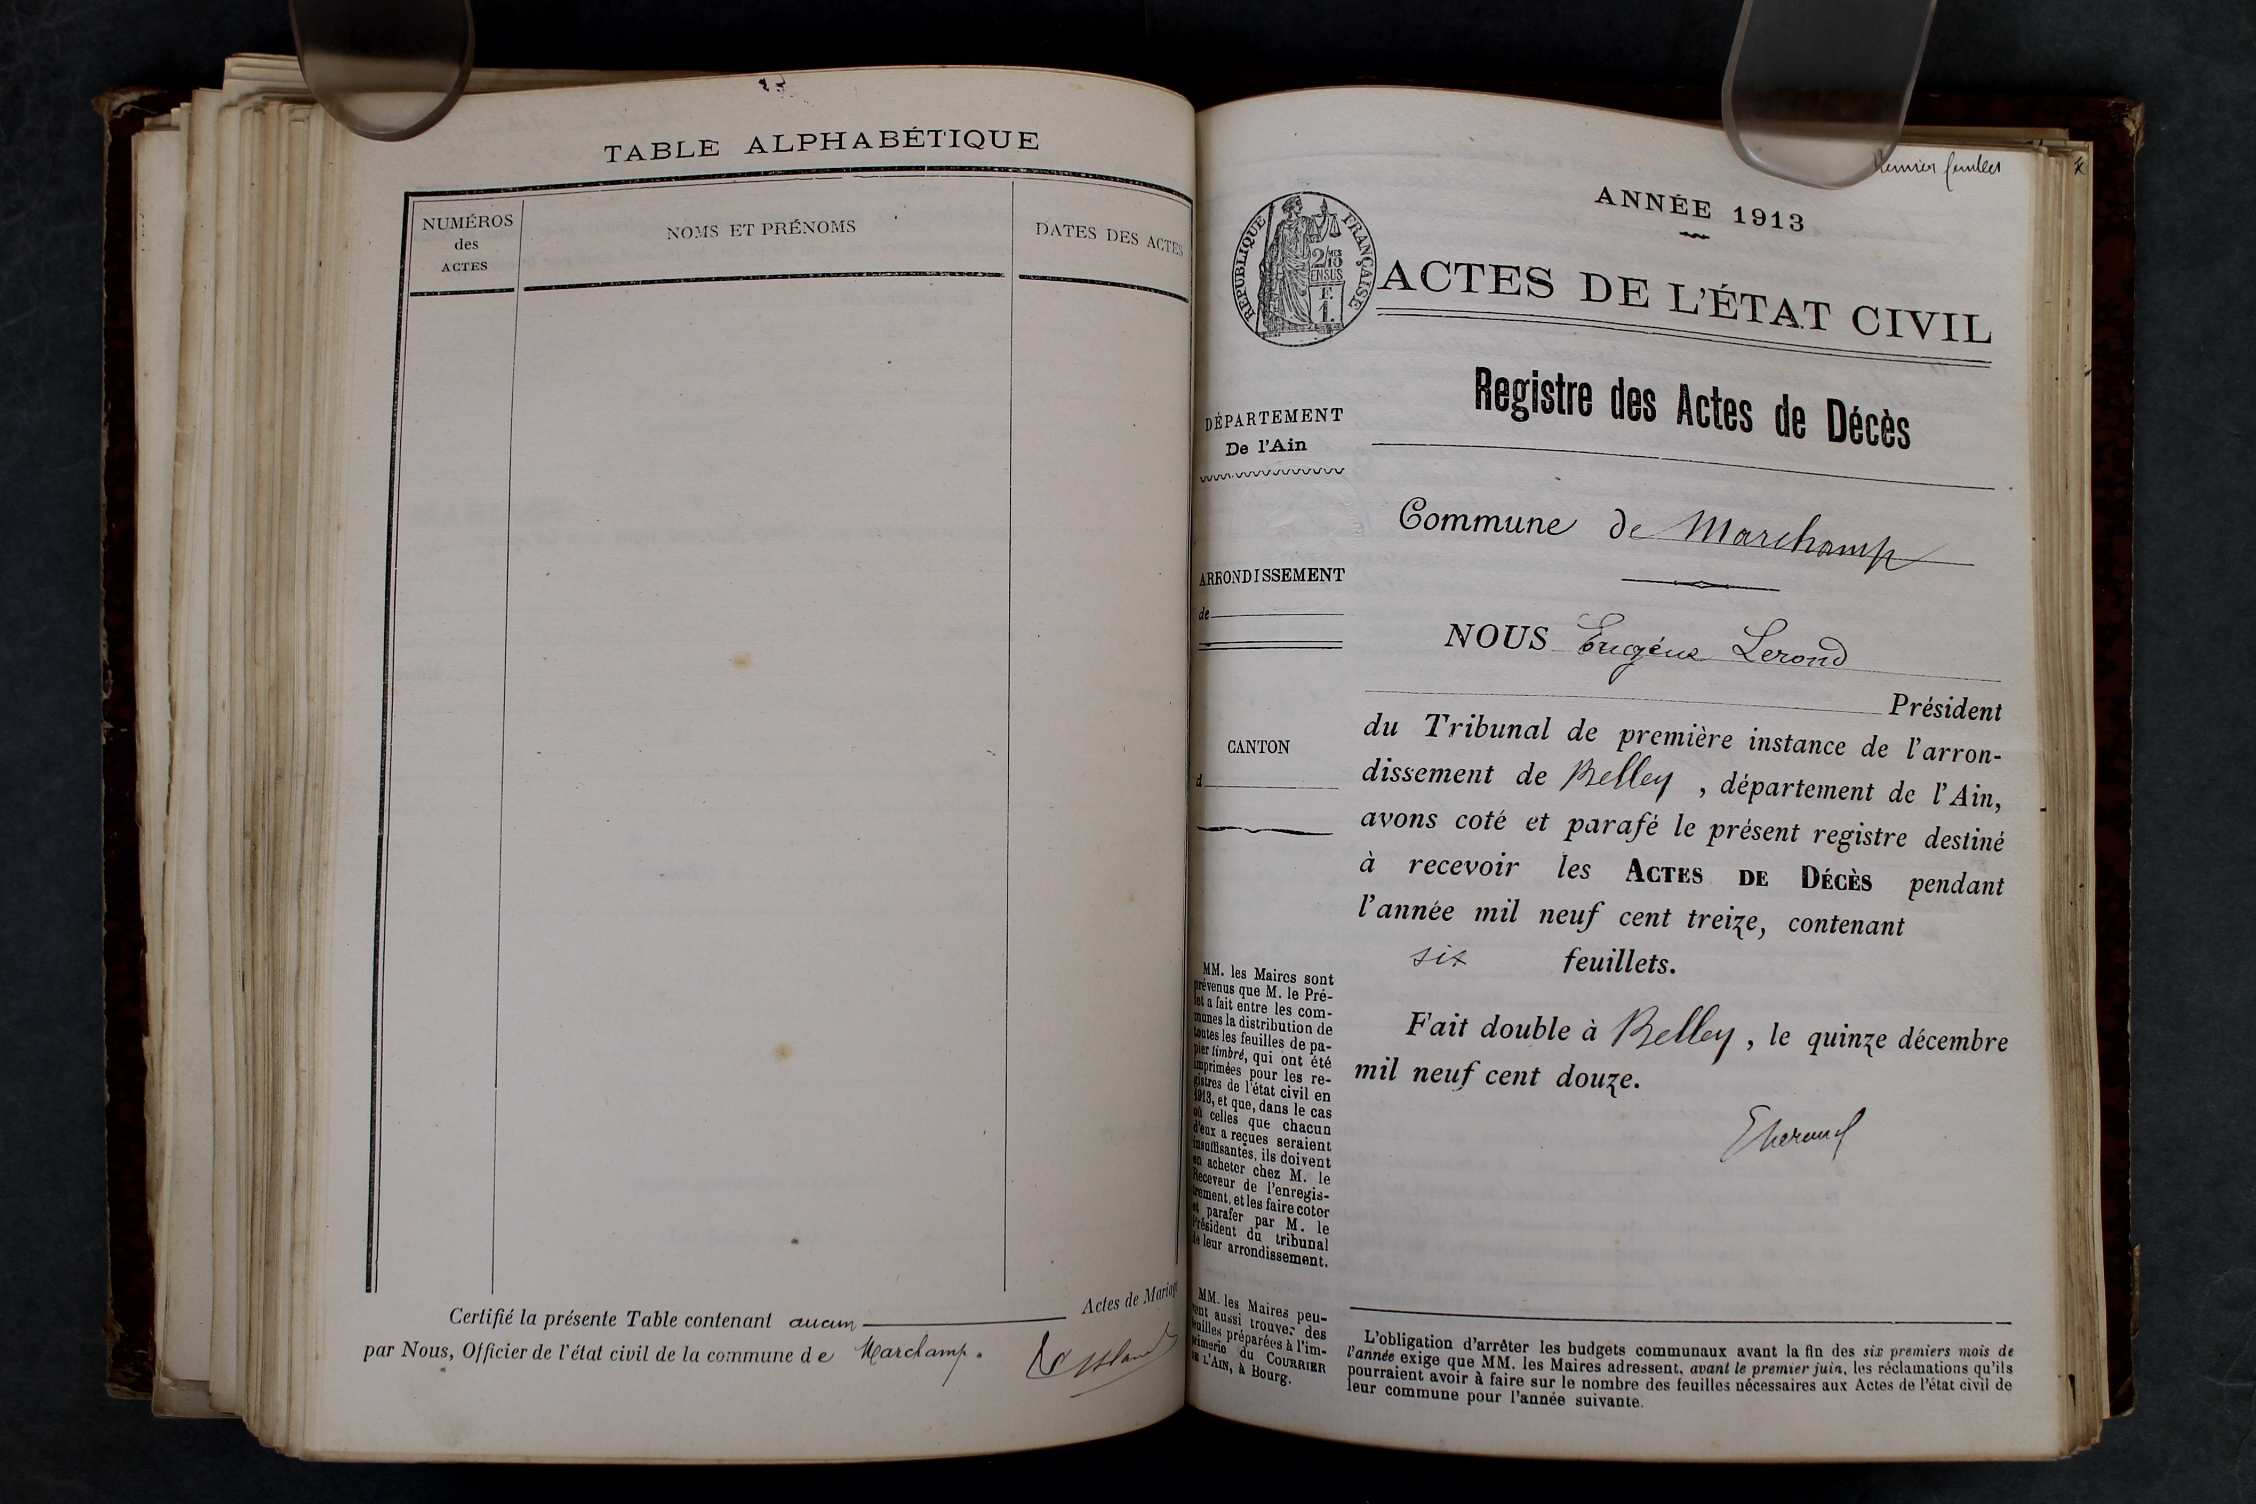 TABLE ALPHABÉTIQUE
NUMÉROS
des
ACTES
NOMS ET PRÉNOMS
DATES DES ACTES
Certifié la présente Table contenant aucun Actes de Mariage
par Nous, Officier de l'état civil de la commune de Marchamp.
Premier feuillet
ANNÉE 1913
RÉPUBLIQUE FRANÇAISE
2/10MES
EN SUS
F.
1.
ACTES DE L'ÉTAT CIVIL
Registre des Actes de Décès
DÉPARTEMENT
De l'Ain
ARRONDISSEMENT
de
CANTON
d
MM. les Maires sont
prévenus que M. le Pré-
fet a fait entre les com-
munes la distribution de
toutes les feuilles de pa-
pier timbré, qui ont été
imprimées pour les re-
gistres de l'état civil en
1913, et que, dans le cas
où celles que chacun
d'eux a reçues seraient
insuffisantes, ils doivent
en acheter chez M. le
Receveur de l'enregis-
trement, et les faire coter
et parafer par M. le
Président du tribunal
de leur arrondissement.
MM. les Maires peu-
vent aussi trouver des
feuilles préparées à l'im-
primerie du COURRIER
DE L'AIN, à Bourg.
Commune de Marchamp
NOUS Eugène Lerond
Président
du Tribunal de première instance de l'arron-
dissement de Belley, département de l'Ain,
avons coté et parafé le présent registre destiné
à recevoir les ACTES DE DÉCÈS pendant
l'année mil neuf cent treize, contenant
six feuillets.
Fait double à Belley, le quinze décembre
mil neuf cent douze.
ELerond
L'obligation d'arrêter les budgets communaux avant la fin des six premiers mois de
l'année exige que MM. les Maires adressent, avant le premier juin, les réclamations qu'ils
pourraient avoir à faire sur le nombre des feuilles nécessaires aux Actes de l'état civil de
leur commune pour l'année suivante.